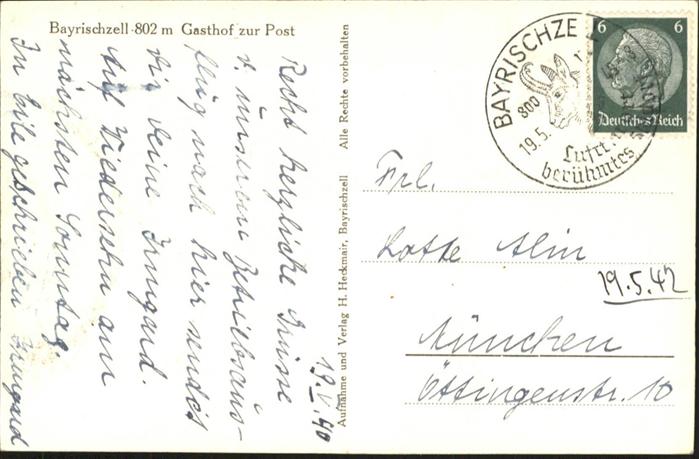 Bayrischzell 802 m Gasthof zur Post
19.V.40
Recht herzliche Grüsse
v. unserem Betriebsaus-
flug nach hier sendet
Dir Deine Irmgard.
Auf Wiedersehn am
nächsten Sonntag
In Eile geschrieben Irmgard
Aufnahme und Verlag H. Heckmair, Bayrischzell
Alle Rechte vorbehalten
BAYRISCHZE
800
19.5.
berühmtes
6 6
Deutsches Reich
Frl.
Lotte Alin
19.5.42
München
Öttingenstr. 10